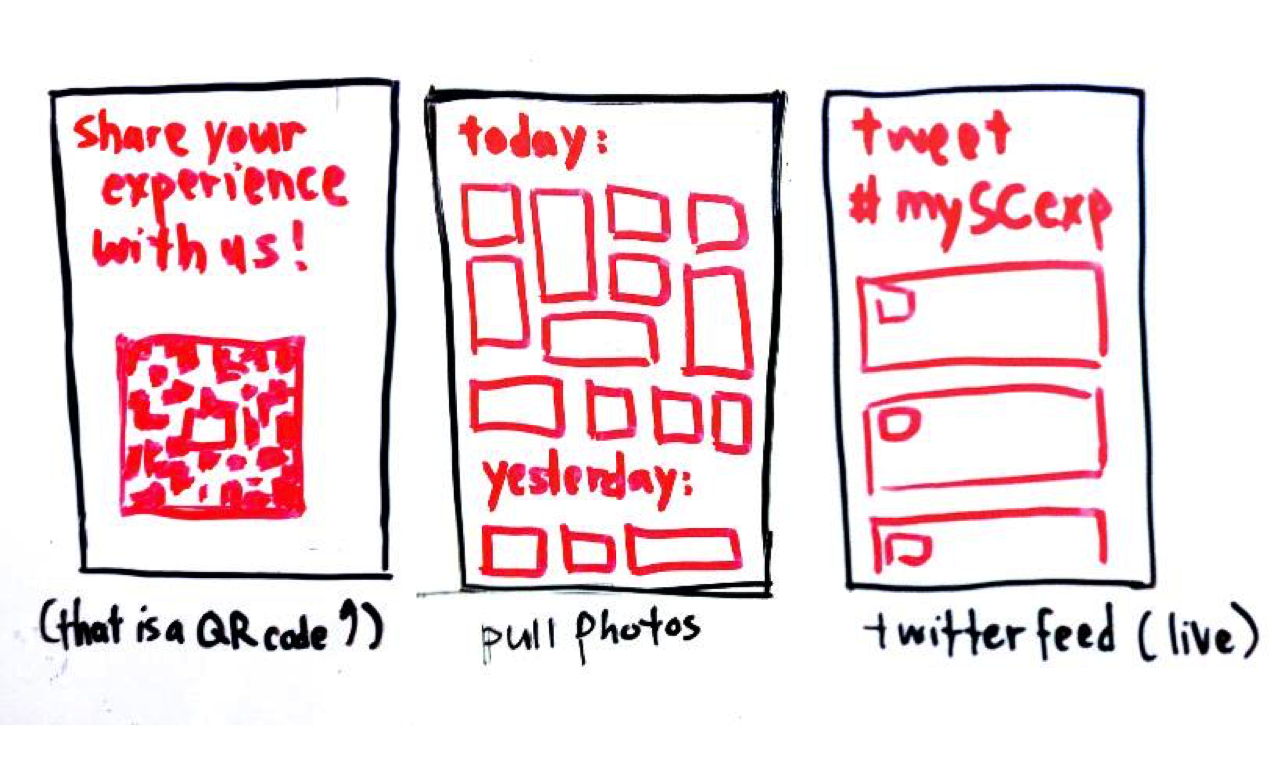 share your
experience
with us!
(that is a QR code ↑)
today:
yesterday:
pull photos
tweet
#mySCexp
twitter feed (live)